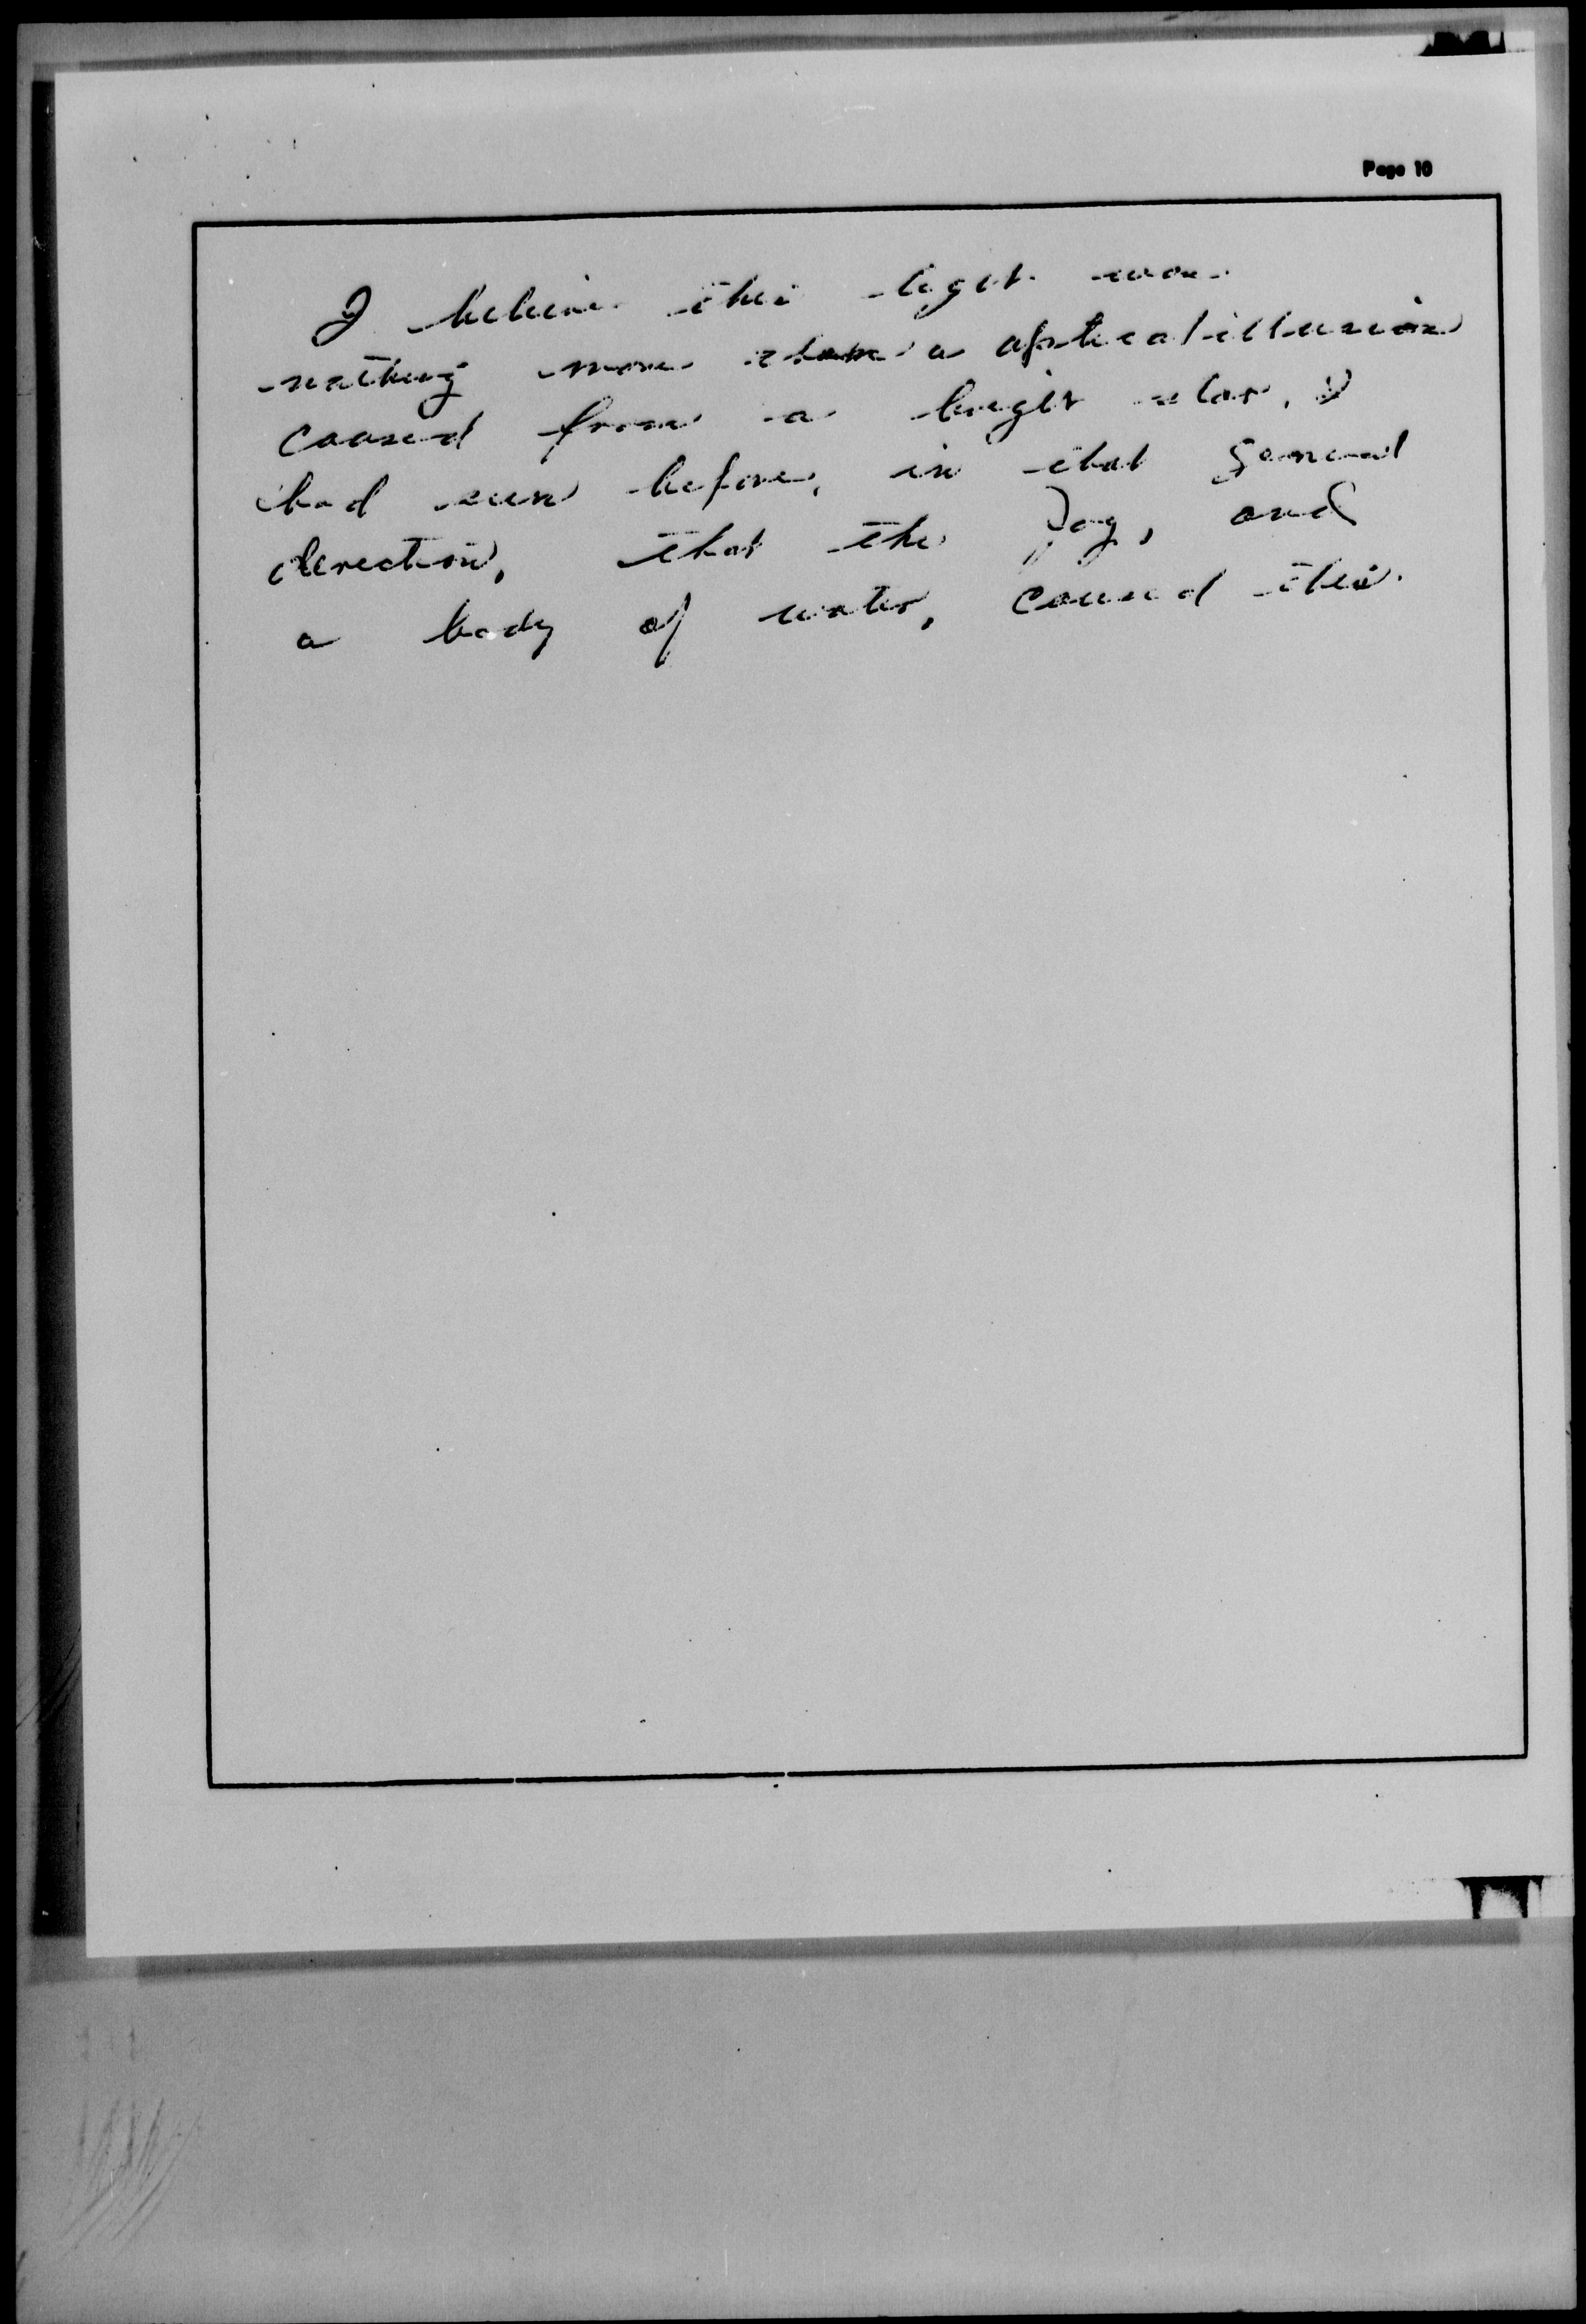 Page 10
I believe this light was
nothing more than a optical illusion
caused from a bright star, I
had seen before, in that general
direction, that the fog, and
a body of water, caused this.